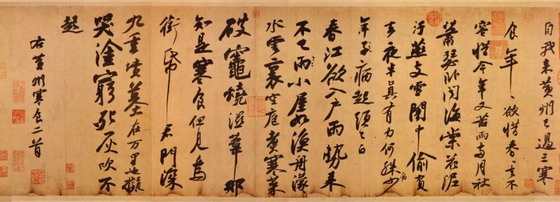 自我來黃州已過三寒
食年〻欲惜春〻去不
容惜今年又苦雨兩月秋
蕭瑟臥聞海棠花泥
汙燕支雪闇中偷負
去夜半真有力何殊少
年子病起頭已白
春江欲入戶雨勢來
不已雨小屋如漁舟濛〻
水雲裏空庖煮寒菜
破竈燒濕葦那
知是寒食但見烏
銜帋君門深
九重墳墓在萬里也擬
哭塗窮死灰吹不
起
右黃州寒食二首